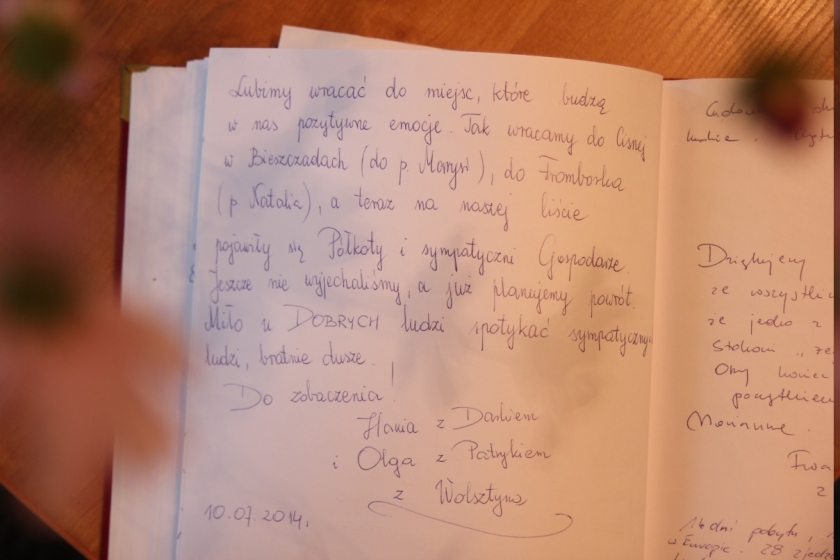 Lubimy wracać do miejsc, które budzą
w nas pozytywne emocje. Tak wracamy do Cisnej
w Bieszczadach (do p. Marysi), do Fromborka
(p Natalia), a teraz na naszej liście
pojawiły się Półkoty i sympatyczni Gospodarze.
Jeszcze nie wyjechaliśmy, a już planujemy powrót.
Miło u DOBRYCH ludzi spotykać sympatycznych
ludzi, bratnie dusze.
Do zobaczenia!
Hania z Darkiem
i Olga z Patrykiem
z Wolsztyna
10.07.2014.
Dziękujemy
ze wszystki
że jedno z
Marianne.
14 dni pobytu,
w Europie. 28